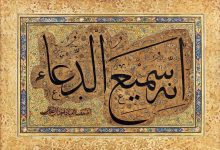 انه سميع الدعاء